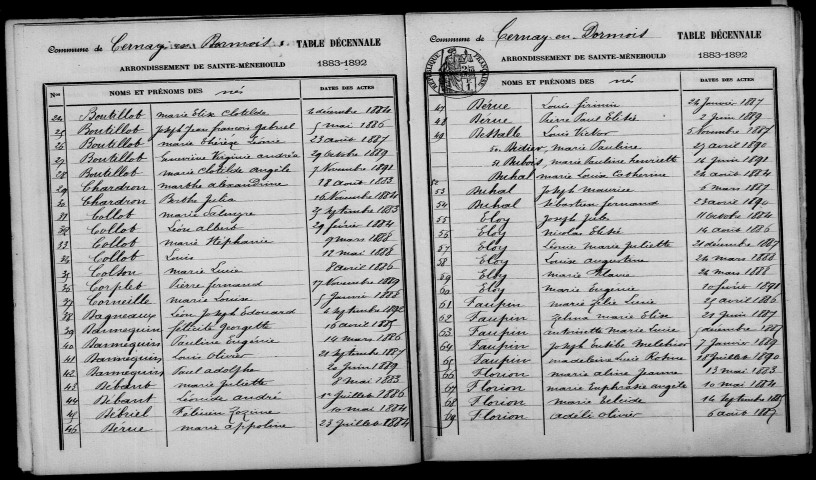 Commune de Cernay en Dormois. TABLE DÉCENNALE
ARRONDISSEMENT DE SAINTE-MÉNEHOULD 1883-1892
Nos NOMS ET PRÉNOMS DES nés DATES DES ACTES
24 Boutillot marie Elix Clotilde 6 décembre 1884
25 Boutillot Joseph Jean françois Gabriel 5 mai 1886
26 Boutillot marie thérèse Léonie 23 août 1887
27 Boutillot Virginie andréa 29 octobre 1889
28 Boutillot marie Clotilde angèle 7 Novembre 1891
29 Chardron marthe alexandrine 18 août 1883
30 Chardron Berthe Julia 16 Novembre 1884
31 Collot marie 25 septembre 1883
32 Collot Léon albert 29 février 1884
33 Collot marie Stéphanie 9 mars 1886
34 Collot Louis 12 mai 1888
35 Colson marie Lucie 8 avril 1886
36 Corplet Pierre fernand 17 Novembre 1889
37 Corneille marie Louise 5 Janvier 1886
38 Dagneaux Léon Joseph Edouard 4 septembre 1892
39 Darmequin félicité Georgette 16 avril 1885
40 Darmequin Pauline Eugénie 14 mars 1886
41 Darmequin Louis Olivier 21 septembre 1887
42 Darmequin Paul adolphe 20 Juin 1889
43 Débant marie Juliette 8 mai 1883
44 Débant Léonide andré 1er Juillet 1886
45 Débriel Zozime 10 mai 1884
46 Dérue marie appoline 23 Juillet 1884
Commune de Cernay-en-Dormois TABLE DÉCENNALE
ARRONDISSEMENT DE SAINTE-MÉNEHOULD 1883-1892
NOMS ET PRÉNOMS DES nés DATES DES ACTES
47 Dérue Louis firmin 24 Janvier 1887
48 Dérue Pierre Paul Elisée 2 Juin 1889
49 Dessalle Louis Victor 5 Novembre 1887
50 Didier marie Pauline 27 avril 1890
51 Dubois marie Pauline henriette 14 Janvier 1891
52 Duhal marie Louise Catherine 26 août 1884
53 Duhal Joseph maurice 6 mars 1887
54 Duhal Sébastien fernand 23 avril 1890
55 Eloy Joseph Jules 11 octobre 1884
56 Eloy Nicolas Elisée 14 août 1886
57 Eloy Léonie Marie Juliette 21 décembre 1887
58 Eloy Louise augustine 24 mars 1888
59 Eloy marie Flavie 24 mars 1888
60 Eloy marie Eugénie 10 février 1891
61 Faupin marie Zélie Lucie 25 avril 1886
62 Faupin Zelma marie Elise 20 Juin 1887
63 Faupin antoinette marie Lucie 5 décembre 1887
64 Faupin Joseph Melchior 7 Janvier 1889
65 Faupin madeleine Luce 28 Juillet 1890
66 Florion marie aline Jeanne 13 mai 1883
67 Florion marie Euphrasie angèle 10 mai 1884
68 Florion marie Elcide 14 septembre 1885
69 Florion adèle olivier 6 août 1887